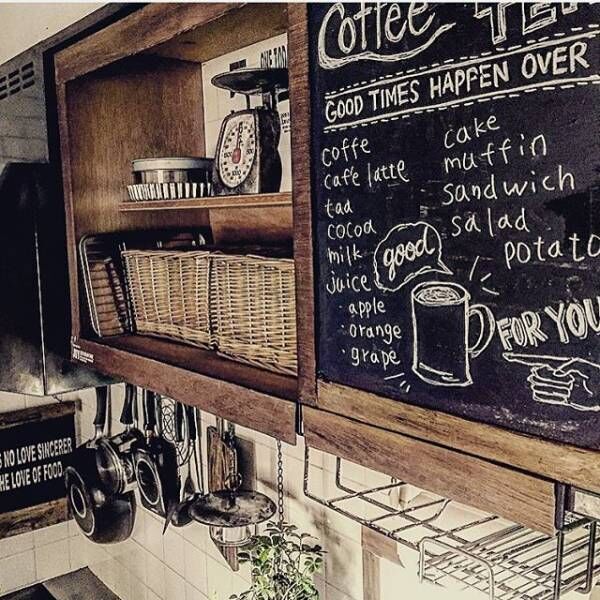 Coffee TE
GOOD TIMES HAPPEN OVER
coffe
cafe latte
taa
cocoa
milk
juice
· apple
· orange
· grape
good
cake
muffin
sandwich
salad
potato
FOR YOU
S NO LOVE SINCERER
HE LOVE OF FOOD